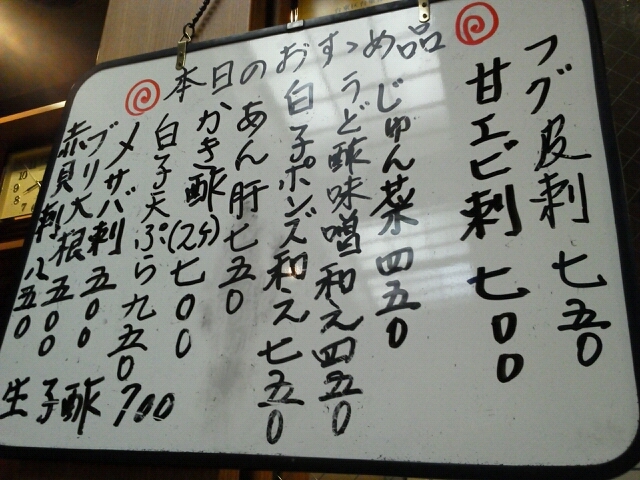 本日のおすゝめ品
フグ皮刺 七五0
甘エビ刺 七00
じゅん菜 四五0
うど酢味噌和え 四五0
白子ポンズ和え 七五0
あん肝 七五0
かき酢(スダ) 七00
白子天ぷら 九五0
〆サバ刺 五00
ブリ大根 五00
赤貝刺 八五0
生子酢 700